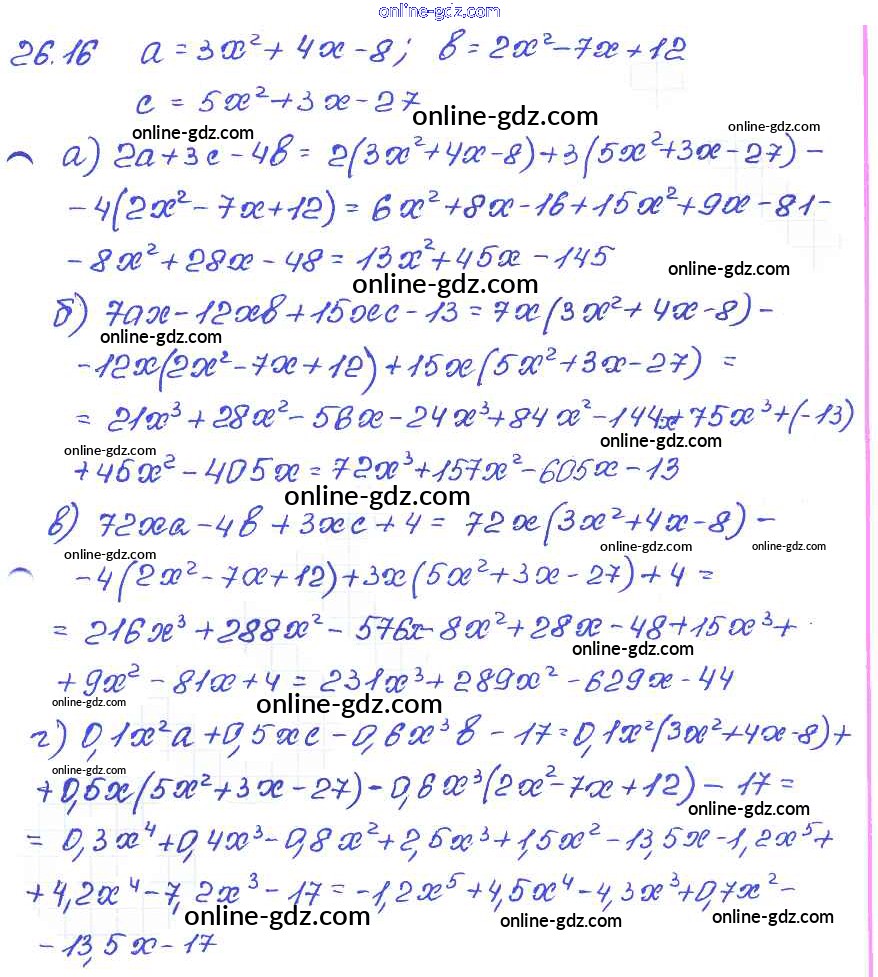 online-gdz.com
26.16 a = 3x² + 4x - 8; b = 2x² - 7x + 12
c = 5x² + 3x - 27
online-gdz.com
online-gdz.com online-gdz.com
а) 2a + 3c - 4b = 2(3x² + 4x - 8) + 3(5x² + 3x - 27) -
- 4(2x² - 7x + 12) = 6x² + 8x - 16 + 15x² + 9x - 81 -
- 8x² + 28x - 48 = 13x² + 45x - 145
online-gdz.com
online-gdz.com
б) 7ax - 12xb + 15xc - 13 = 7x(3x² + 4x - 8) -
online-gdz.com
- 12x(2x² - 7x + 12) + 15x(5x² + 3x - 27) =
= 21x³ + 28x² - 56x - 24x³ + 84x² - 144x + 75x³ + (-13)
online-gdz.com online-gdz.com
+ 45x² - 405x = 72x³ + 157x² - 605x - 13
online-gdz.com
в) 72xa - 4b + 3xc + 4 = 72x(3x² + 4x - 8) -
online-gdz.com online-gdz.com online-gdz.com
- 4(2x² - 7x + 12) + 3x(5x² + 3x - 27) + 4 =
= 216x³ + 288x² - 576x - 8x² + 28x - 48 + 15x³ +
online-gdz.com
+ 9x² - 81x + 4 = 231x³ + 289x² - 629x - 44
online-gdz.com online-gdz.com
г) 0,1x²a + 0,5xc - 0,6x³b - 17 = 0,1x²(3x² + 4x - 8) +
online-gdz.com
+ 0,5x(5x² + 3x - 27) - 0,6x³(2x² - 7x + 12) - 17 =
online-gdz.com
= 0,3x⁴ + 0,4x³ - 0,8x² + 2,5x³ + 1,5x² - 13,5x - 1,2x⁵ +
+ 4,2x⁴ - 7,2x³ - 17 = -1,2x⁵ + 4,5x⁴ - 4,3x³ + 0,7x² -
online-gdz.com online-gdz.com online-gdz.com
- 13,5x - 17